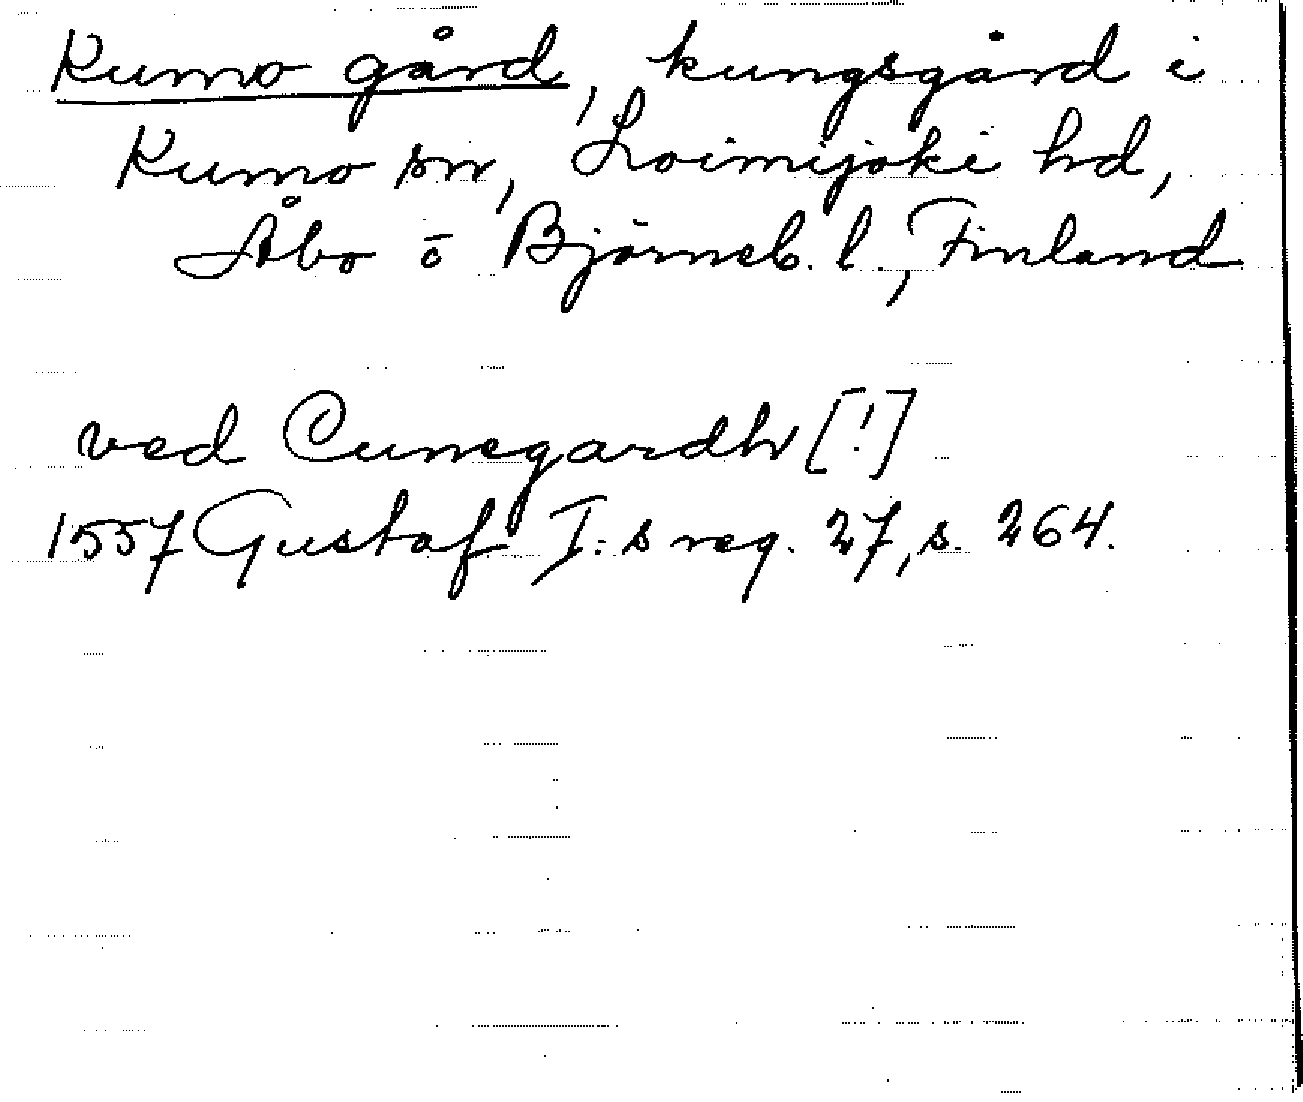 Kumo gård, kungsgård i
Kumo sn, Loimijoki hd,
Åbo o Björneb. l., Finland
ved Cunegardh [!]
1557 Gustaf I:s reg. 27, s. 264.